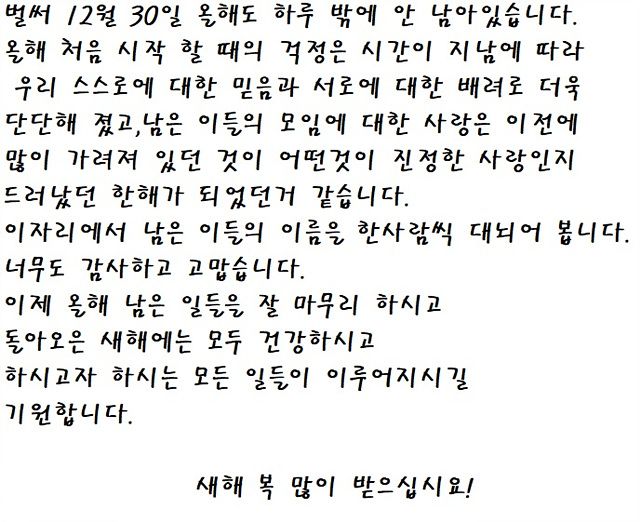 벌써 12월 30일 올해도 하루 밖에 안 남아있습니다.
올해 처음 시작 할 때의 걱정은 시간이 지남에 따라
우리 스스로에 대한 믿음과 서로에 대한 배려로 더욱
단단해 졌고,남은 이들의 모임에 대한 사랑은 이전에
많이 가려져 있던 것이 어떤것이 진정한 사랑인지
드러났던 한해가 되었던거 같습니다.
이자리에서 남은 이들의 이름을 한사람씩 대뇌어 봅니다.
너무도 감사하고 고맙습니다.
이제 올해 남은 일들을 잘 마무리 하시고
돌아오은 새해에는 모두 건강하시고
하시고자 하시는 모든 일들이 이루어지시길
기원합니다.
새해 복 많이 받으십시요!